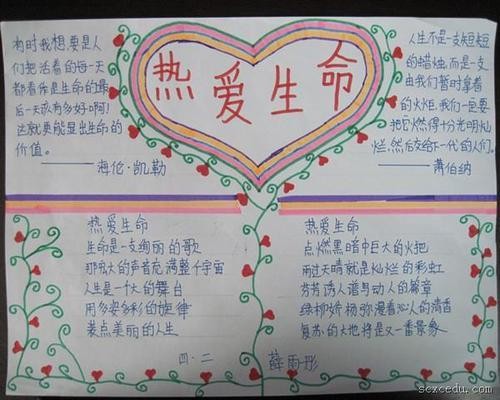 热爱生命
有时我想,要是人
们把活着的每一天
都看作是生命的最
后一天该有多好啊!
这就更能显出生命的
价值。
——海伦·凯勒
人生不是一支短短
的蜡烛,而是一支
由我们暂时拿着
的火炬,我们一定要
把它燃得十分光明灿
烂,然后交给下一代的人们。
——萧伯纳
热爱生命
生命是一支绚丽的歌
那乳大的声音充满整个宇宙
人生是一个大的舞台
用多姿多彩的旋律
装点美丽的人生
热爱生命
点燃黑暗中巨大的火把
雨过天晴就是灿烂的彩虹
芬芳诱人谱写动人的篇章
绿柳娇杨弥漫着沁人的清香
复苏的大地将是又一番景象
四·二
薛雨彤
scxcedu.com